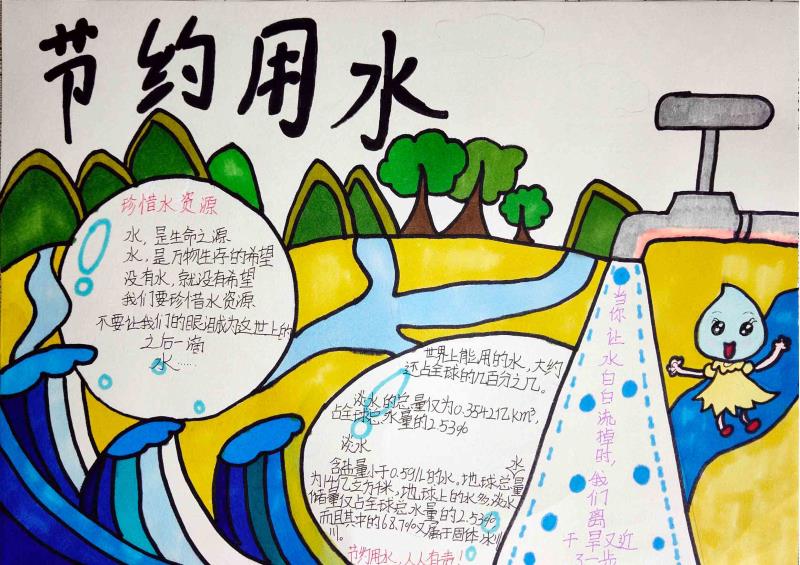 节约用水
珍惜水资源
水，是生命之源
水，是万物生存的希望
没有水，就没有希望
我们要珍惜水资源
不要让我们的眼泪成为这世上的
之后一滴
水……
世界上能用的水，大约
还占全球的几百分之几。
淡水的总量仅为0.354217亿km³，
占全球总水量的2.53%
淡水
含盐量小于0.59/L的水。地球总量
水
为14亿立方米，地球上的水多，淡水
储量仅占全球总水量的2.53%
而且其中的68.7%又属于固体冰川
川。
节约用水，人人有责！
当你让水白白流掉时，我们离
干旱又近
了一步